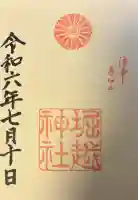 堀越
神社
令和六年七月十日